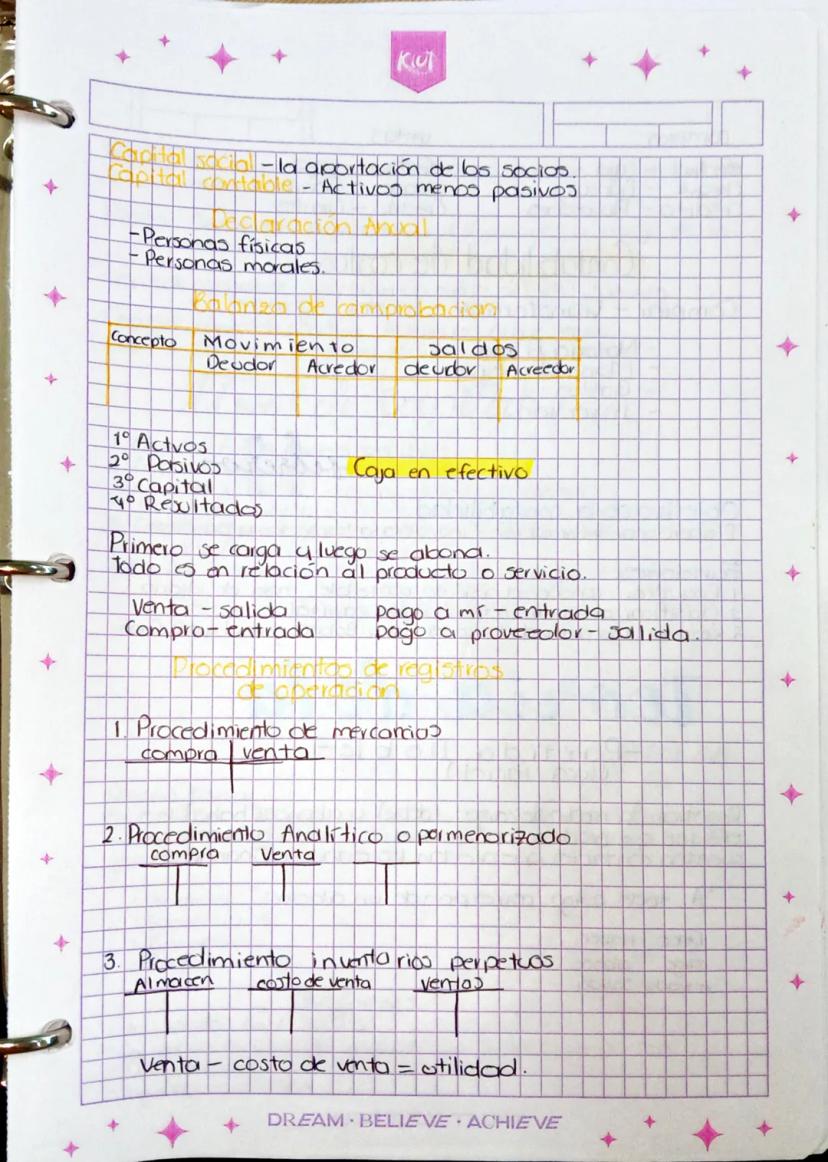 KIUT
Capital social - la aportación de los socios.
Capital contable - Activos menos pasivos
Declaración Anual
- Personas físicas
- Personas morales.
Balanza de comprobacion
Concepto Movimiento saldos
Deudor Acredor deudor Acreedor
1° Actvos
2° Pasivos Caja en efectivo
3° Capital
4° Resultados
Primero se carga y luego se abona.
Todo es en relación al producto o servicio.
Venta - salida pago a mí - entrada
Compra - entrada pago a proveedor - salida.
Procedimientos de registros
de operación
1. Procedimiento de mercancias
compra venta
2. Procedimiento Analítico o pormenorizado
compra Venta
3. Procedimiento inventarios perpetuos
Almacen costo de venta ventas
Venta - costo de venta = utilidad.
DREAM · BELIEVE · ACHIEVE